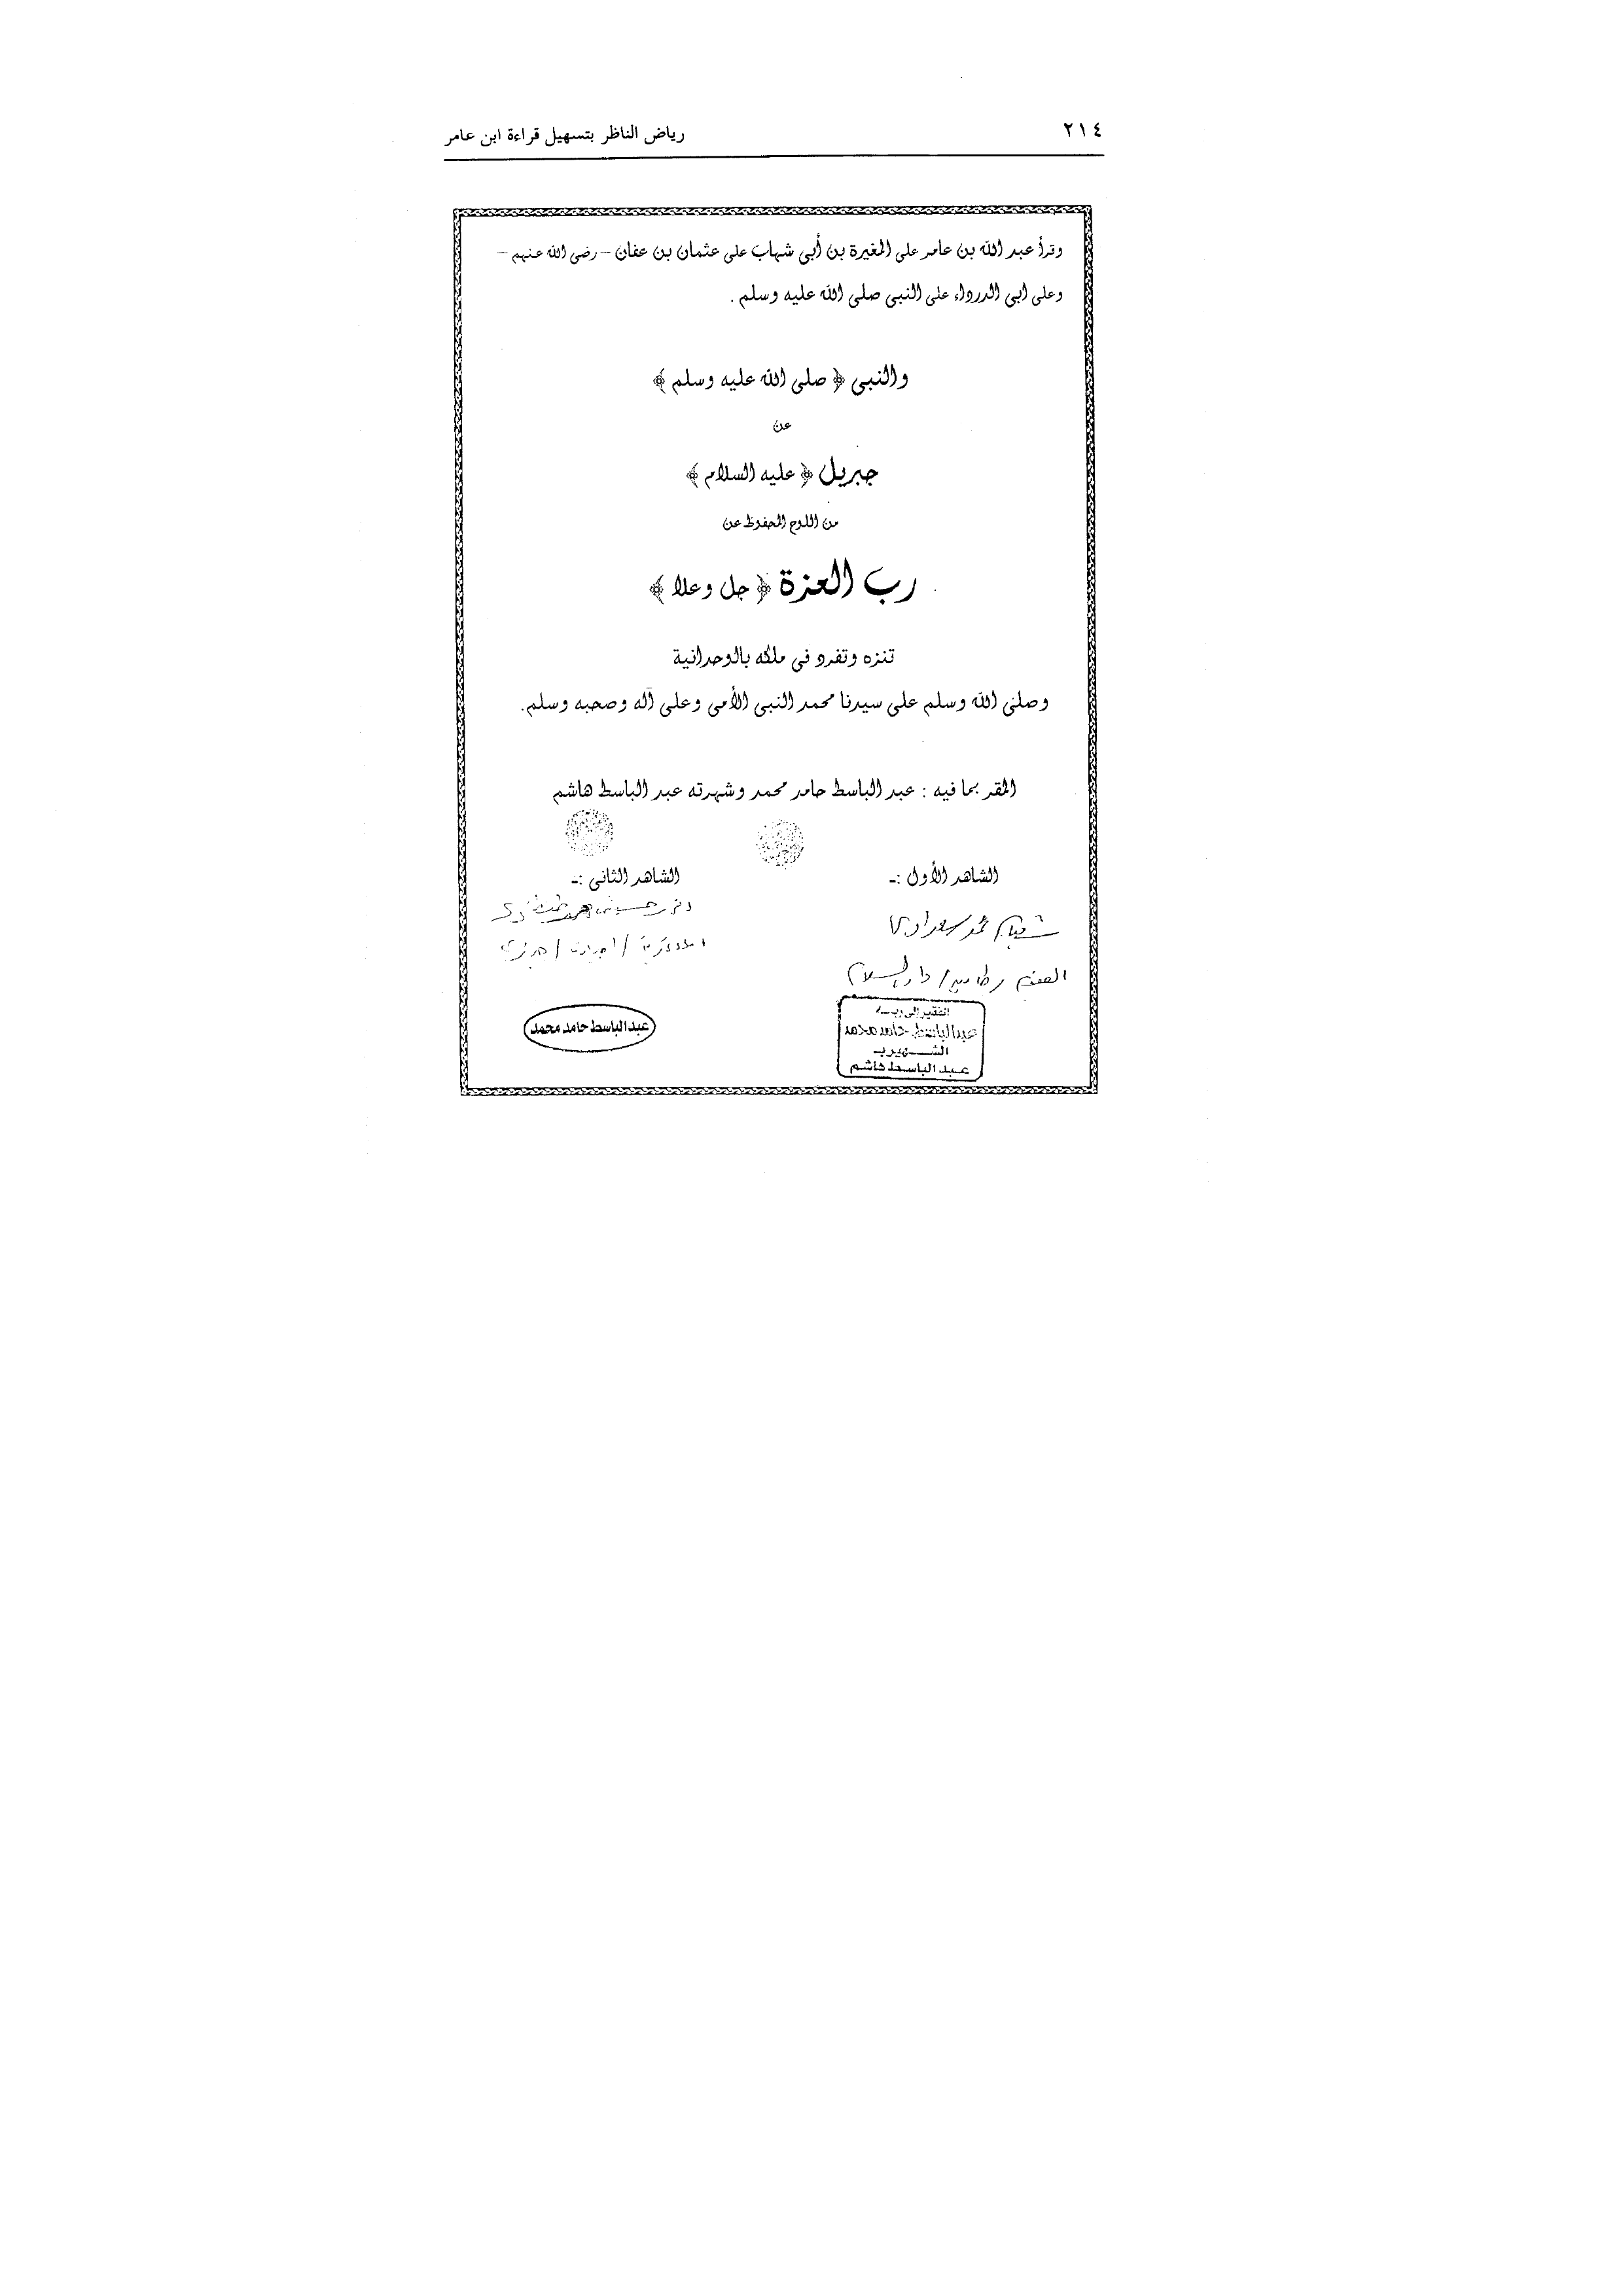 ٢١٤
رياض الناظر بتسهيل قراءة ابن عامر
وقرأ عبد الله بن عامر على المغيرة بن أبي شهاب على عثمان بن عفان – رضى الله عنهم –
وعلى ابى الدرداء على النبى صلى الله عليه وسلم .
والنبى ﴿ صلى الله عليه وسلم ﴾
عن
جبريل ﴿ عليه السلام ﴾
من اللوح المحفوظ عن
رب العزة ﴿ جل وعلا ﴾
تنزه وتفرد فى ملكه بالوحدانية
وصلى الله وسلم على سيدنا محمد النبى الأمى وعلى آله وصحبه وسلم.
المقر بما فيه : عبد الباسط حامد محمد وشهرته عبد الباسط هاشم
الشاهد الأول :ـ
الشاهد الثانى :ـ
محمد
دار السلام
الفقير إلى
عبد الباسط حامد محمد
الشهير بـ
عبد الباسط هاشم
عبد الباسط حامد محمد